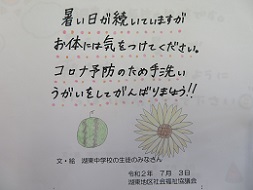 暑い日が続いていますが
お体には気をつけてください。
コロナ予防のため手洗い
うがいをしてがんばりましょう!!
文・絵 湖東中学校の生徒のみなさん
令和2年 7月 3日
湖東地区社会福祉協議会